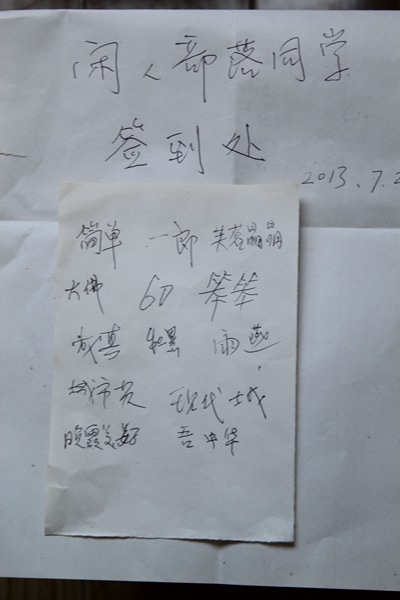 闲人部落同学
签到处
2013.7.2
简单 一郎 芙蓉晶晶
大佛 60 笨笨
雨燕
城市 现代城
晚霞美好 吾中华